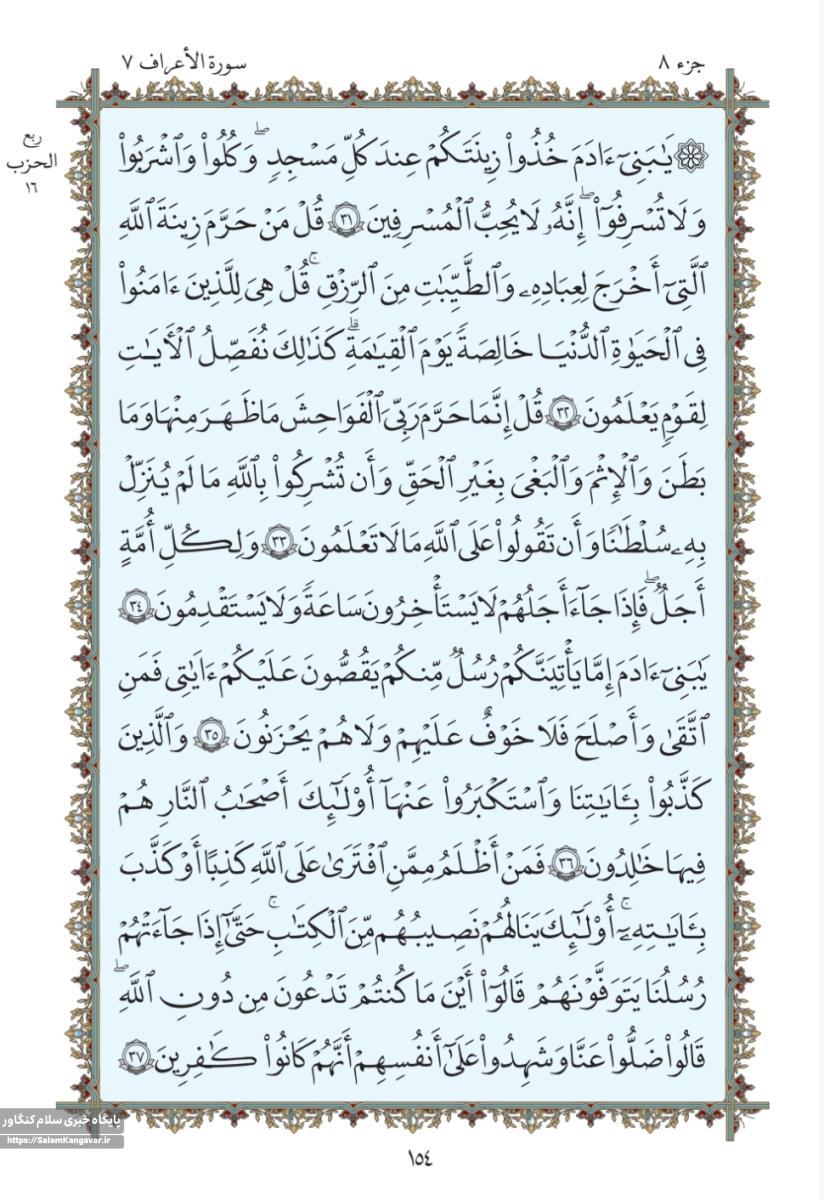 جزء ٨
سورة الأعراف ٧
ربع
الحزب
١٦
۞ يَٰبَنِىٓ ءَادَمَ خُذُوا۟ زِينَتَكُمْ عِندَ كُلِّ مَسْجِدٍ وَكُلُوا۟ وَٱشْرَبُوا۟
وَلَا تُسْرِفُوٓا۟ ۖ إِنَّهُۥ لَا يُحِبُّ ٱلْمُسْرِفِينَ ٣١ قُلْ مَنْ حَرَّمَ زِينَةَ ٱللَّهِ
ٱلَّتِىٓ أَخْرَجَ لِعِبَادِهِۦ وَٱلطَّيِّبَٰتِ مِنَ ٱلرِّزْقِ ۚ قُلْ هِىَ لِلَّذِينَ ءَامَنُوا۟
فِى ٱلْحَيَوٰةِ ٱلدُّنْيَا خَالِصَةً يَوْمَ ٱلْقِيَٰمَةِ ۗ كَذَٰلِكَ نُفَصِّلُ ٱلْأَيَٰتِ
لِقَوْمٍ يَعْلَمُونَ ٣٢ قُلْ إِنَّمَا حَرَّمَ رَبِّىَ ٱلْفَوَٰحِشَ مَا ظَهَرَ مِنْهَا وَمَا
بَطَنَ وَٱلْإِثْمَ وَٱلْبَغْىَ بِغَيْرِ ٱلْحَقِّ وَأَن تُشْرِكُوا۟ بِٱللَّهِ مَا لَمْ يُنَزِّلْ
بِهِۦ سُلْطَٰنًا وَأَن تَقُولُوا۟ عَلَى ٱللَّهِ مَا لَا تَعْلَمُونَ ٣٣ وَلِكُلِّ أُمَّةٍ
أَجَلٌ ۖ فَإِذَا جَآءَ أَجَلُهُمْ لَا يَسْتَأْخِرُونَ سَاعَةً وَلَا يَسْتَقْدِمُونَ ٣٤
يَٰبَنِىٓ ءَادَمَ إِمَّا يَأْتِيَنَّكُمْ رُسُلٌ مِّنكُمْ يَقُصُّونَ عَلَيْكُمْ ءَايَٰتِى فَمَنِ
ٱتَّقَىٰ وَأَصْلَحَ فَلَا خَوْفٌ عَلَيْهِمْ وَلَا هُمْ يَحْزَنُونَ ٣٥ وَٱلَّذِينَ
كَذَّبُوا۟ بِـَٔايَٰتِنَا وَٱسْتَكْبَرُوا۟ عَنْهَآ أُو۟لَٰٓئِكَ أَصْحَٰبُ ٱلنَّارِ هُمْ
فِيهَا خَٰلِدُونَ ٣٦ فَمَنْ أَظْلَمُ مِمَّنِ ٱفْتَرَىٰ عَلَى ٱللَّهِ كَذِبًا أَوْ كَذَّبَ
بِـَٔايَٰتِهِۦٓ ۚ أُو۟لَٰٓئِكَ يَنَالُهُمْ نَصِيبُهُم مِّنَ ٱلْكِتَٰبِ ۚ حَتَّىٰٓ إِذَا جَآءَتْهُمْ
رُسُلُنَا يَتَوَفَّوْنَهُمْ قَالُوٓا۟ أَيْنَ مَا كُنتُمْ تَدْعُونَ مِن دُونِ ٱللَّهِ ۖ
قَالُوا۟ ضَلُّوا۟ عَنَّا وَشَهِدُوا۟ عَلَىٰٓ أَنفُسِهِمْ أَنَّهُمْ كَانُوا۟ كَٰفِرِينَ ٣٧
پایگاه خبری سلام کنگاور
https://SalamKangavar.ir
١٥٤